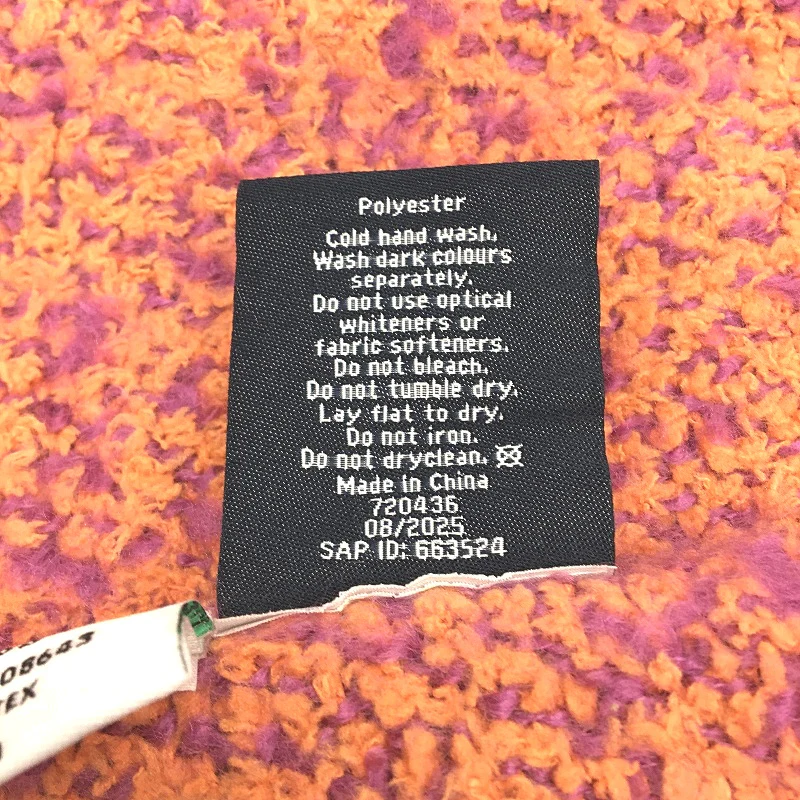 Polyester
Cold hand wash.
Wash dark colours
separately.
Do not use optical
whiteners or
fabric softeners.
Do not bleach.
Do not tumble dry.
Lay flat to dry.
Do not iron.
Do not dryclean.
Made in China
720436
08/2025
SAP ID: 663524
08643